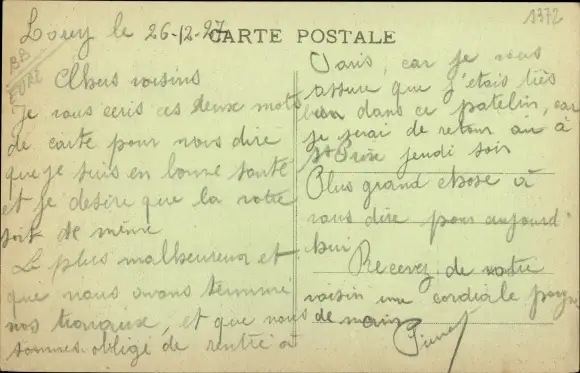 1372
CARTE POSTALE
Lorey le 26-12-27
BB
EURE
Chers voisins
Je vous ecris ces deux mots
de carte pour vous dire
que je suis en bonne santé
et je désire que la votre
soit de même
Le plus malheureux et
que nous avons terminé
nos travaux, et que nous
sommes obligé de rentré a
Paris, car je vous
assure que j'étais très
bien dans ce patelin, car
je serai de retour au à
St Prix jeudi soir
Plus grand chose à
vous dire pour aujourd
hui
Recevez de votre
voisin une cordiale poigne
de main
Pierre